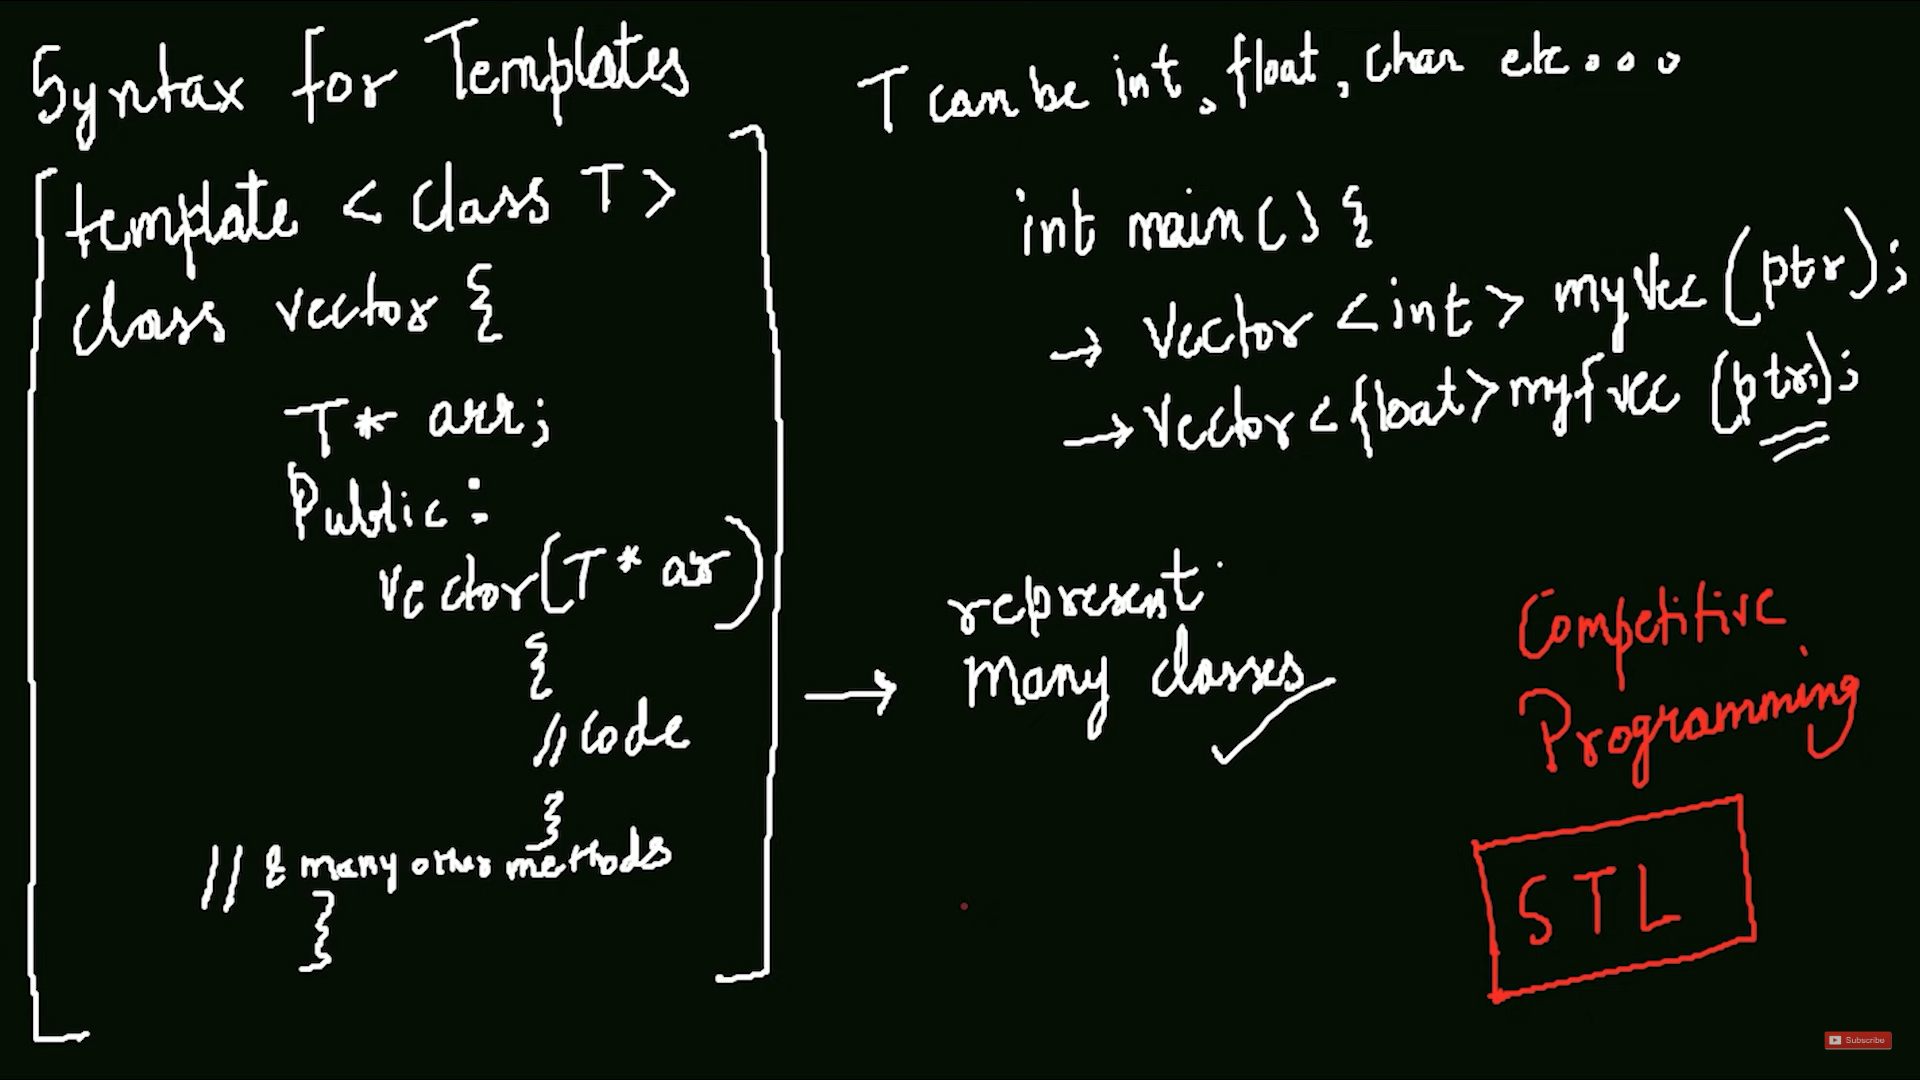 Syntax for Templates
template < class T >
class vector {
T* arr;
Public :
vector(T* ar)
{
// code
}
// & many other methods
}
T can be int, float, char etc...
int main() {
→ vector <int> myvec (ptr);
→ vector <float> myfvec (ptr);
→ represent
many classes
Competitive
Programming
STL
Subscribe